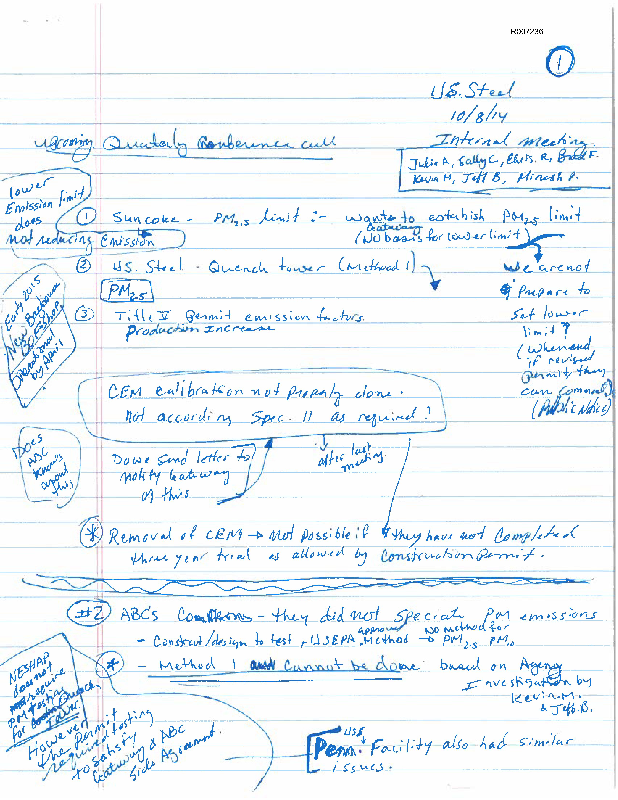 R007236
1
U.S. Steel
10/8/14
Internal meeting
Upcoming Quaterly Conference call
Julie A, Sally C, Chris. R, Brad F.
Kevin M, Jeff B, Minesh P.
lower
Emission limit
does
not reducing Emission
① Suncoke - PM2.5 limit :- wants to establish PM2.5 limit
Gateway
(No basis for lower limit)
② US. Steel - Quench tower (Method 1)
PM2.5
③ Title V Permit emission factors
Production Increase
We are not
Prepare to
Set lower
limit?
(When and
if revised
Permit they
can comment)
(Public Notice)
Early 2015
New Baghouse
COESHOP
Operational
by April
CEM calibration not properly done.
Not according Spec. 11 as required!
Does
ABC
Knows
about
this
Do we send letter to
notify Gateway
of this
after last
meeting
* Removal of CEM → Not possible if they have not completed
three year trial as allowed by Construction Permit.
#2 ABC's - they did not Speciate PM emissions
- Construct/design to test, USEPA approved Method → No method for PM2.5 PM10
* - Method 1 Cannot be done based on Agency
Investigation by
Kevin M.
& Jeff B.
NESHAP
does not
require
PM testing
for
However
the Permit
required testing
to satisfy
Gateway & ABC
Side Agreement.
USS
Facility also had similar
issues.